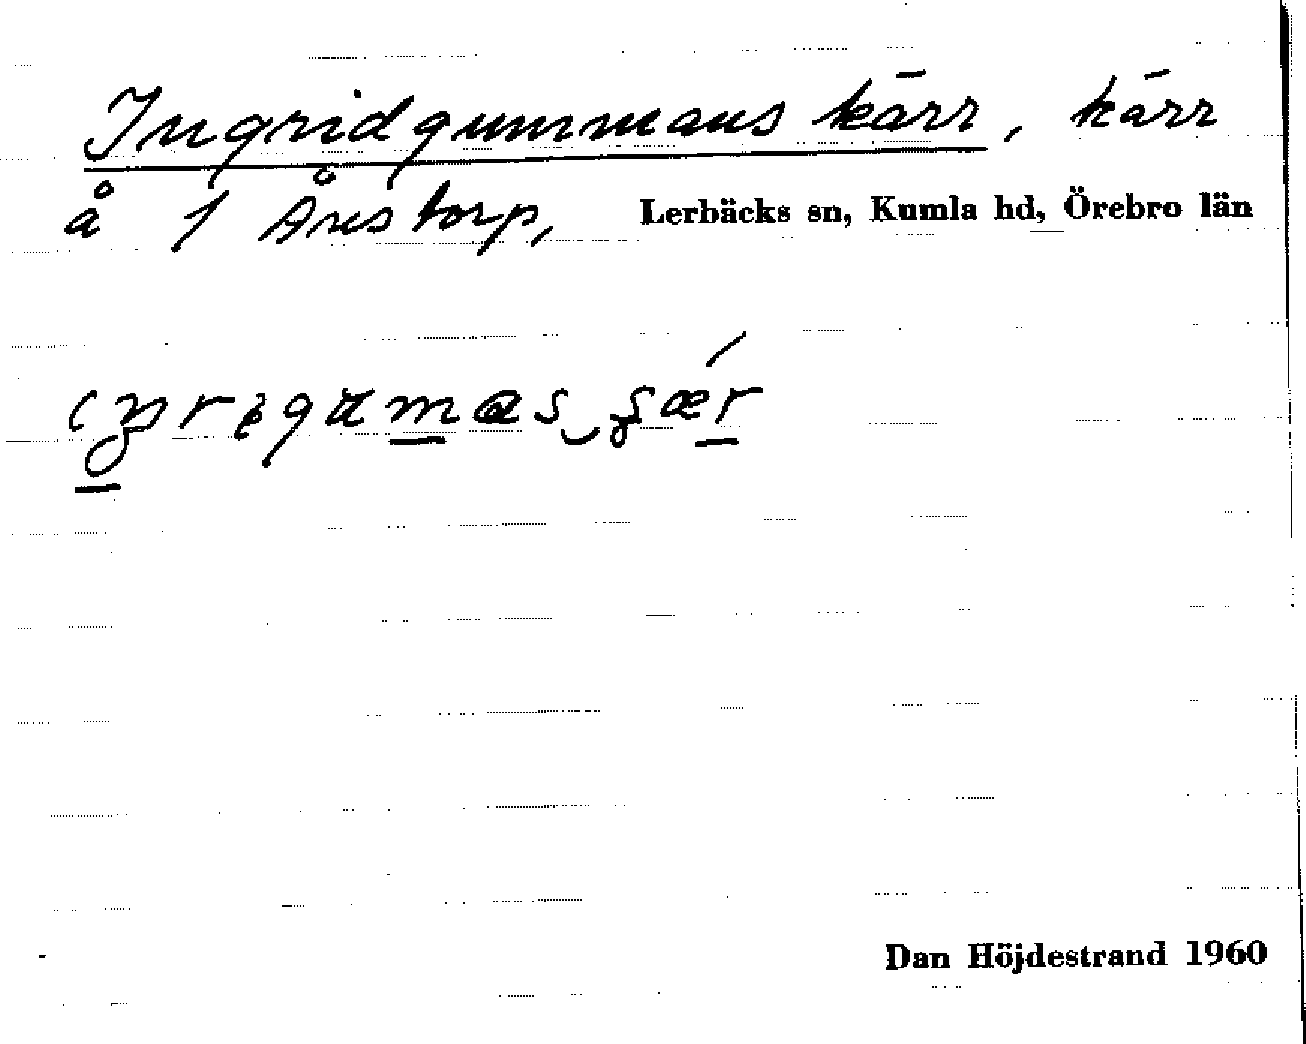 Ingridgummans kärr, kärr
å 1 Årstorp, Lerbäcks sn, Kumla hd, Örebro län
Dan Höjdestrand 1960